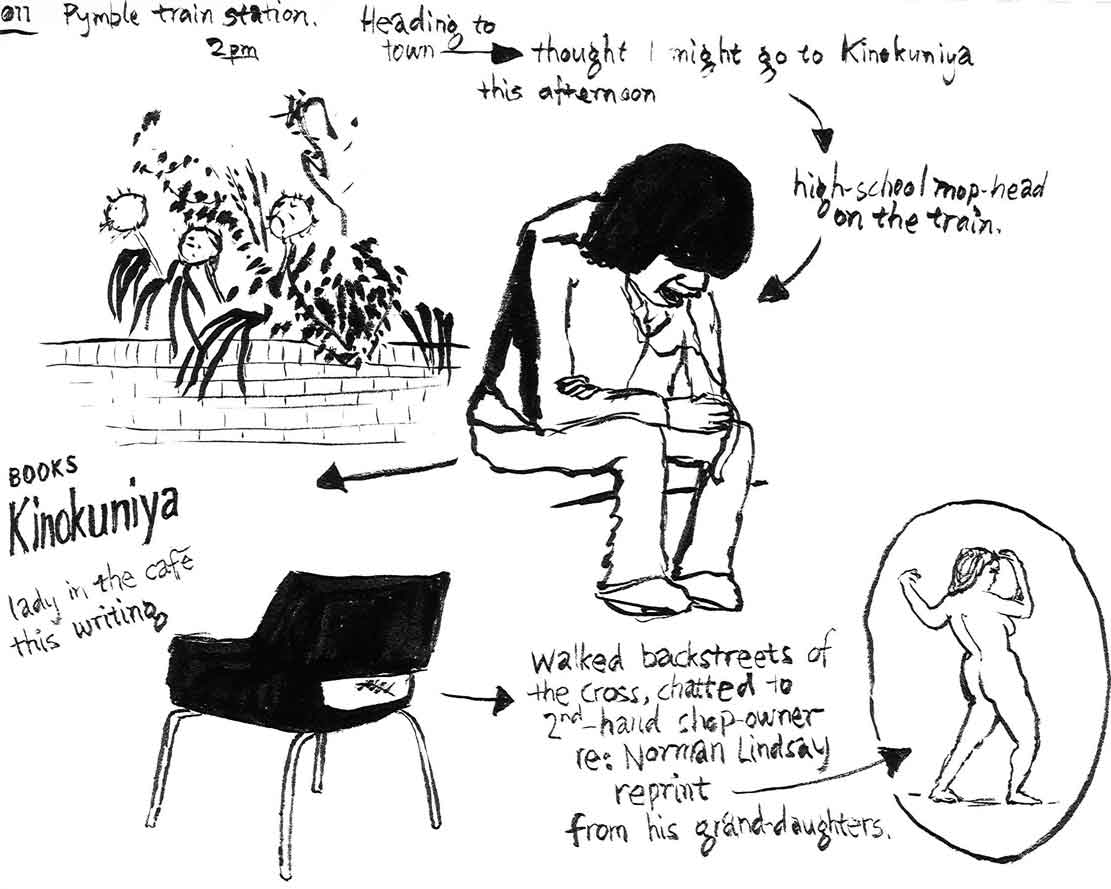 011 Pymble train station.
2pm
Heading to
town
thought I might go to Kinokuniya
this afternoon
high-school mop-head
on the train.
BOOKS
Kinokuniya
lady in the café
this writing
walked backstreets of
the cross, chatted to
2nd-hand shop-owner
re: Norman Lindsay
reprint
from his grand-daughters.